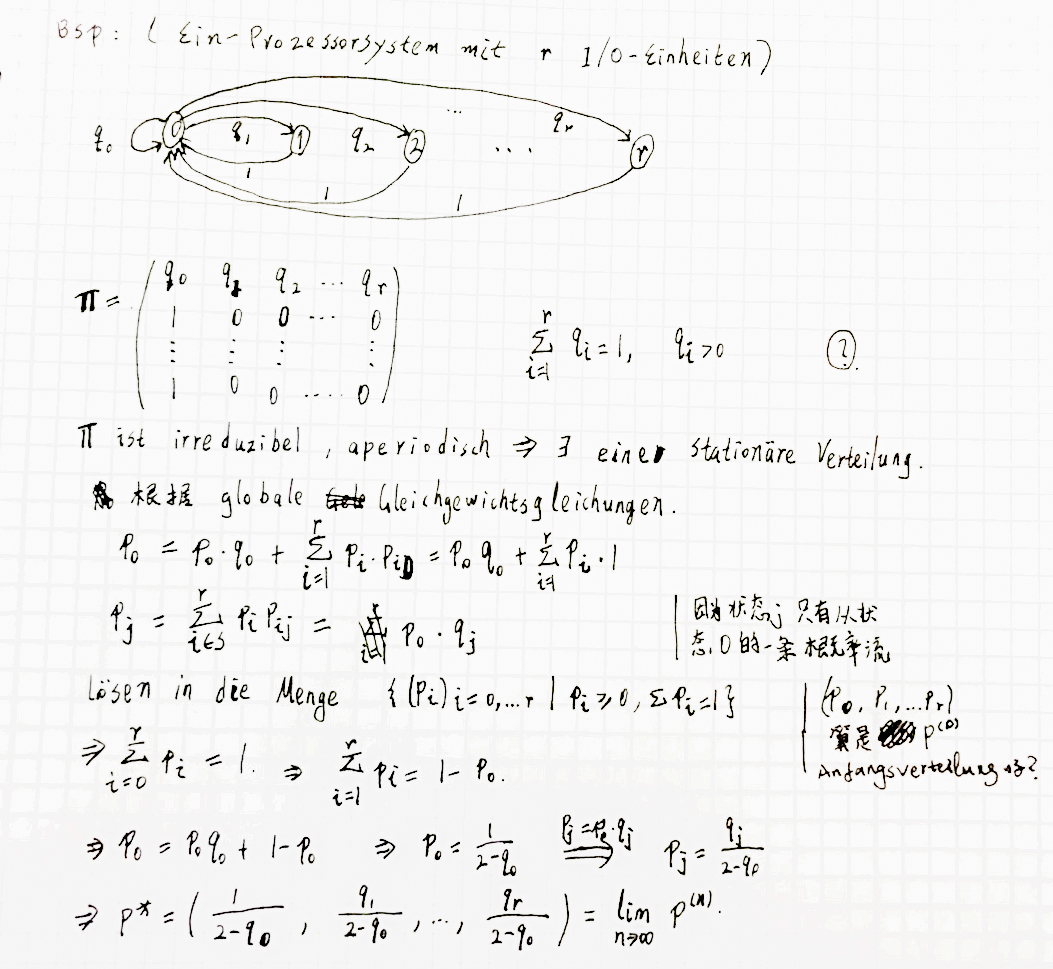 Bsp: (Ein-Prozessorsystem mit r I/O-Einheiten)
q₀ 0 q₁ 1 q₂ 2 ... .... qᵣ r
1 1 1
Π = ( q₀ q₁ q₂ ... qᵣ
1 0 0 ... 0
⋮ ⋮ ⋮ ⋮
1 0 0 ..... 0 )
∑_{i=1}^{r} qᵢ = 1, qᵢ > 0 ?
Π ist irreduzibel, aperiodisch ⇒ ∃ einer stationäre Verteilung.
根据 globale Gleichgewichtsgleichungen.
P₀ = P₀·q₀ + ∑_{i=1}^{r} Pᵢ·Pᵢ₀ = P₀ q₀ + ∑_{i=1}^{r} Pᵢ·1
Pⱼ = ∑_{i∈S}^{r} Pᵢ Pᵢⱼ = P₀·qⱼ
因为状态j 只有从状
态0的一条概率流
Lösen in die Menge {(Pᵢ) i=0,...r | Pᵢ ≥ 0, ΣPᵢ=1}
(P₀, P₁, ...Pᵣ)
P⁽⁰⁾
Anfangsverteilung 吗?
⇒ ∑_{i=0}^{r} Pᵢ = 1. ⇒ ∑_{i=1}^{r} Pᵢ = 1 - P₀.
⇒ P₀ = P₀q₀ + 1 - P₀ ⇒ P₀ = 1/(2-q₀) ⇒ (Pⱼ=P₀·qⱼ) Pⱼ = qⱼ/(2-q₀)
⇒ P* = ( 1/(2-q₀), q₁/(2-q₀), ..., qᵣ/(2-q₀) ) = lim_{n→∞} P⁽ⁿ⁾.